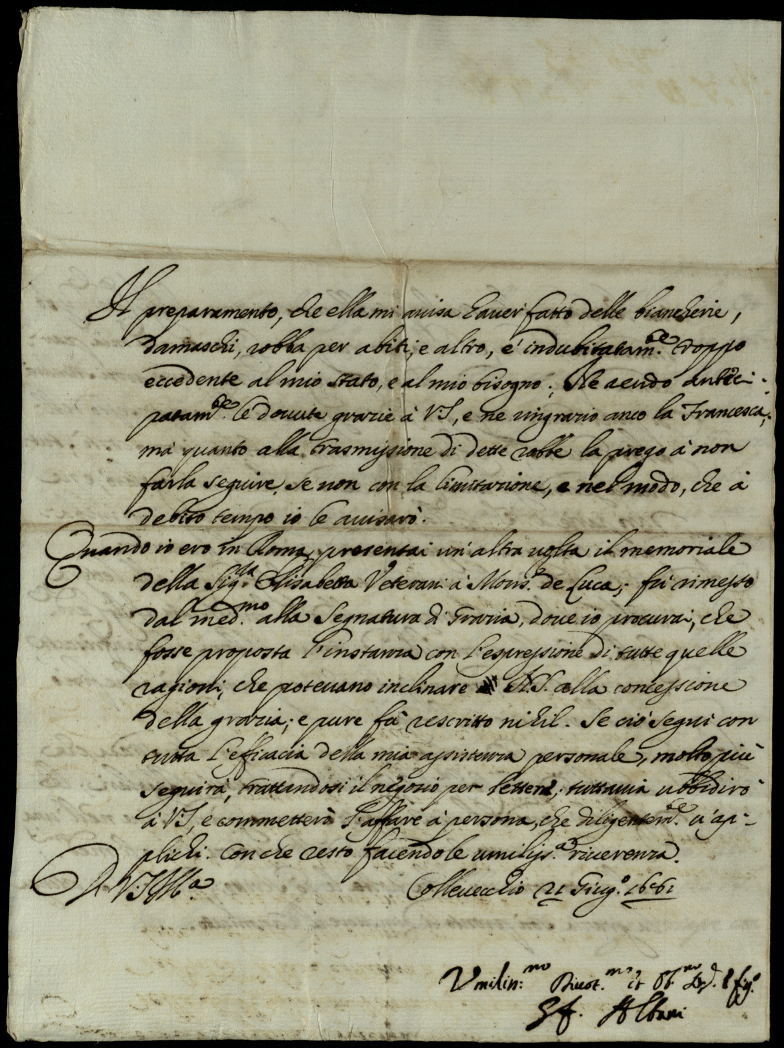 Il preparamento, che ella mi avisa haver fatto delle biancherie,
damaschi, robba per abiti, e altro, e' indubitatam.te troppo
eccedente al mio stato, e al mio bisogno; Ne rendo antici-
patam.te le dovute grazie à V.S., e ne ringrazio anco la Francesca,
mà quanto alla trasmissione di dette robbe la prego à non
farla seguire, se non con la limitazione, e nel modo, che à
debito tempo io le avisarò.
Quando io ero in Roma, presentai un'altra volta il memoriale
della Sig.ra Elisabetta Veterani à Mons.r de Luca; fù rimesso
dal med.mo alla Segnatura di Grazia, dove io procurai, che
fosse proposta l'instanza con l'espressione di tutte quelle
ragioni, che potevano inclinare N.S. alla concessione
della grazia; e pure fù rescritto nihil. Se ciò seguì con
tutta l'efficacia della mia assistenza personale, molto più
seguirà, trattandosi il negozio per lettere; tuttavia ubbidirò
à V.S., e commetterò l'affare à persona, che diligentem.te v'ap-
plichi. Con che resto facendole umiliss.a riverenza.
D. V.S. Ill.ma Collevecchio 21 Giug.o
Umilis.mo Divot.mo et Ob.mo figl.o
Gf. Albani